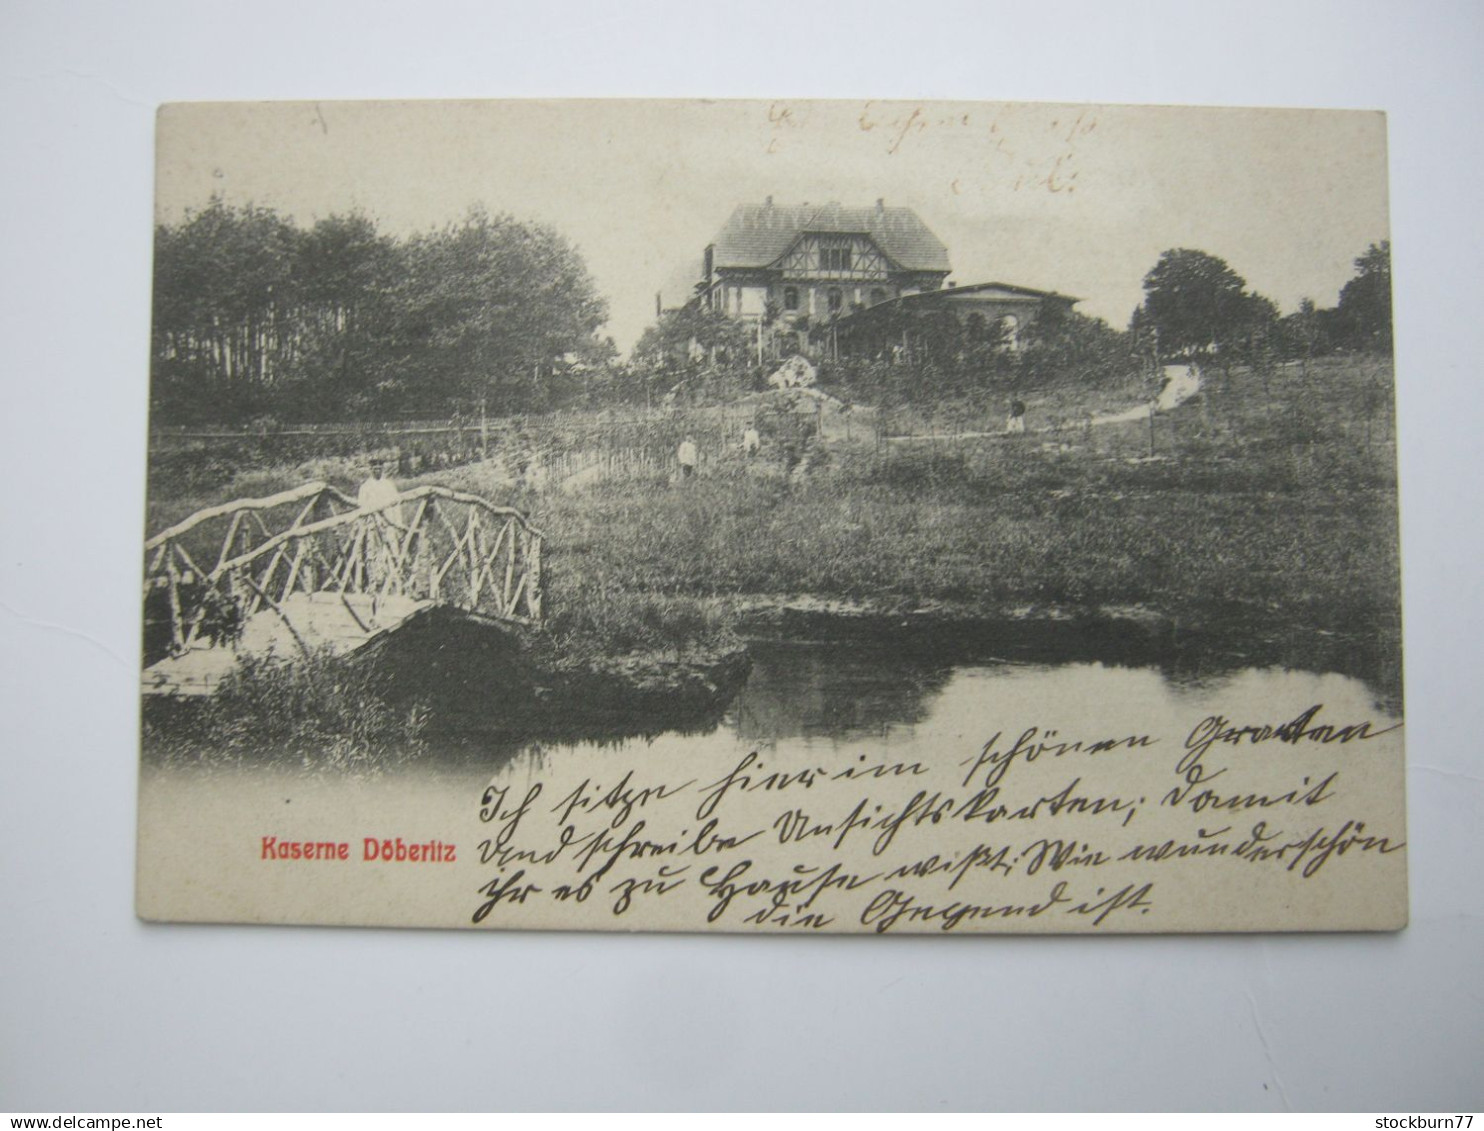 Kaserne Döberitz
Ich sitze hier im schönen Gratten
Und schreibe Ansichtskarten; Damit
ihr es zu Hause wißt; Wie wunderschön
die Gegend ist.
www.delcampe.net
stockburn77